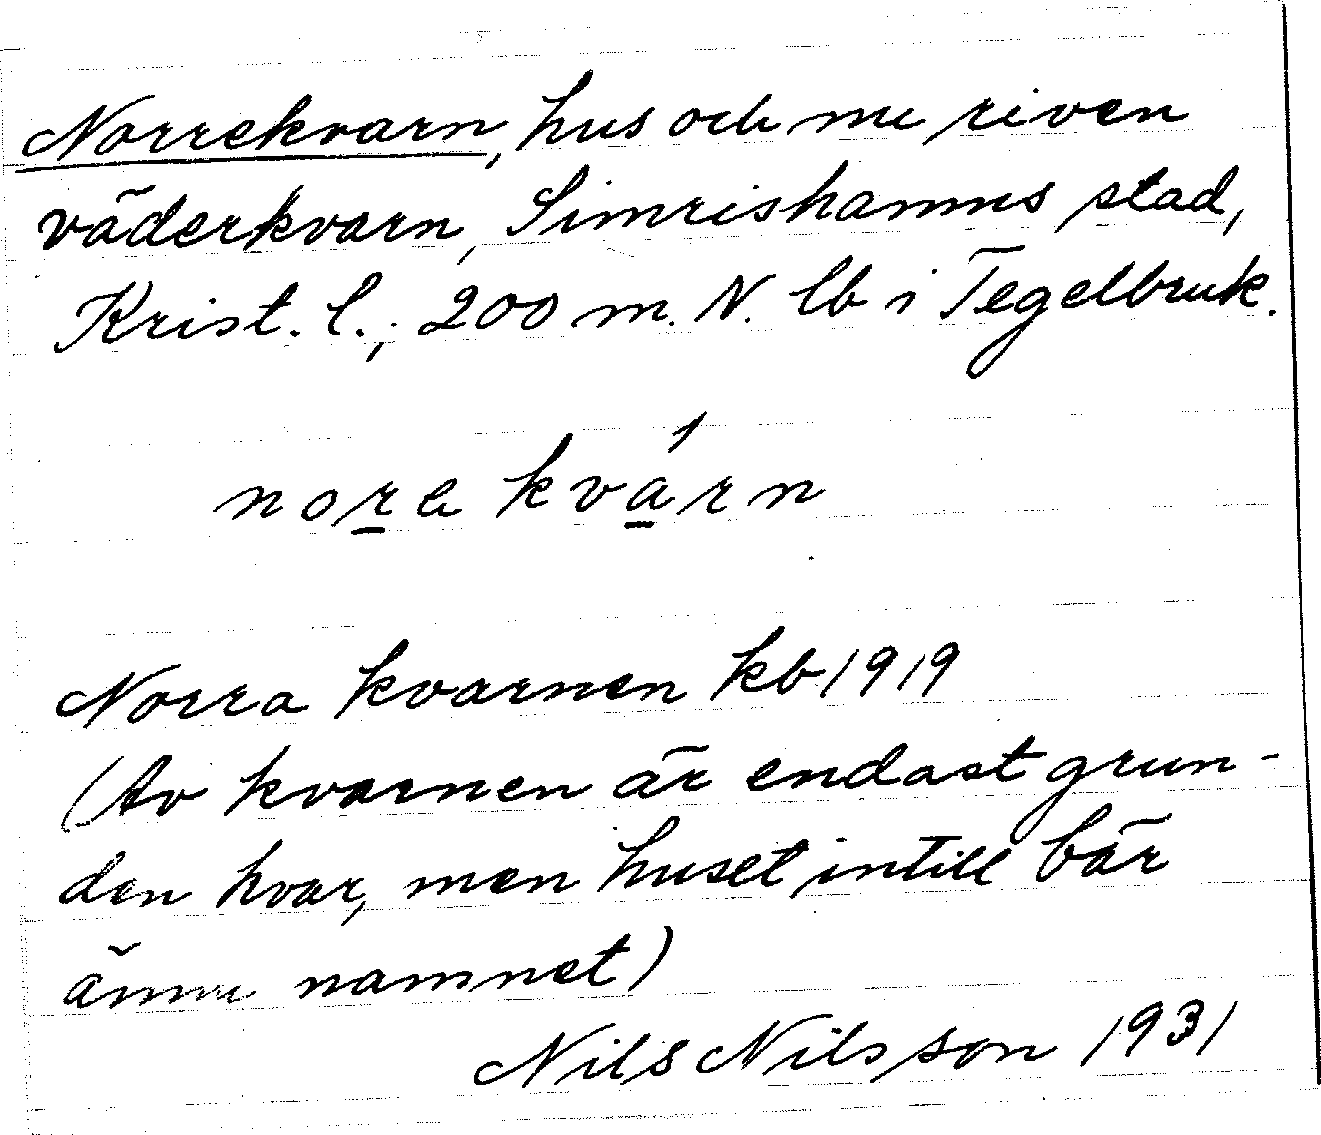 Norrekvarn, hus och nu riven
väderkvarn, Simrishamns stad,
Krist. l., 200 m. N. lb i Tegelbruk.
nore kvárn
Norra kvarnen kb 1919
(Av kvarnen är endast grun-
den kvar, men huset intill bär
ännu namnet)
Nils Nilsson 1931